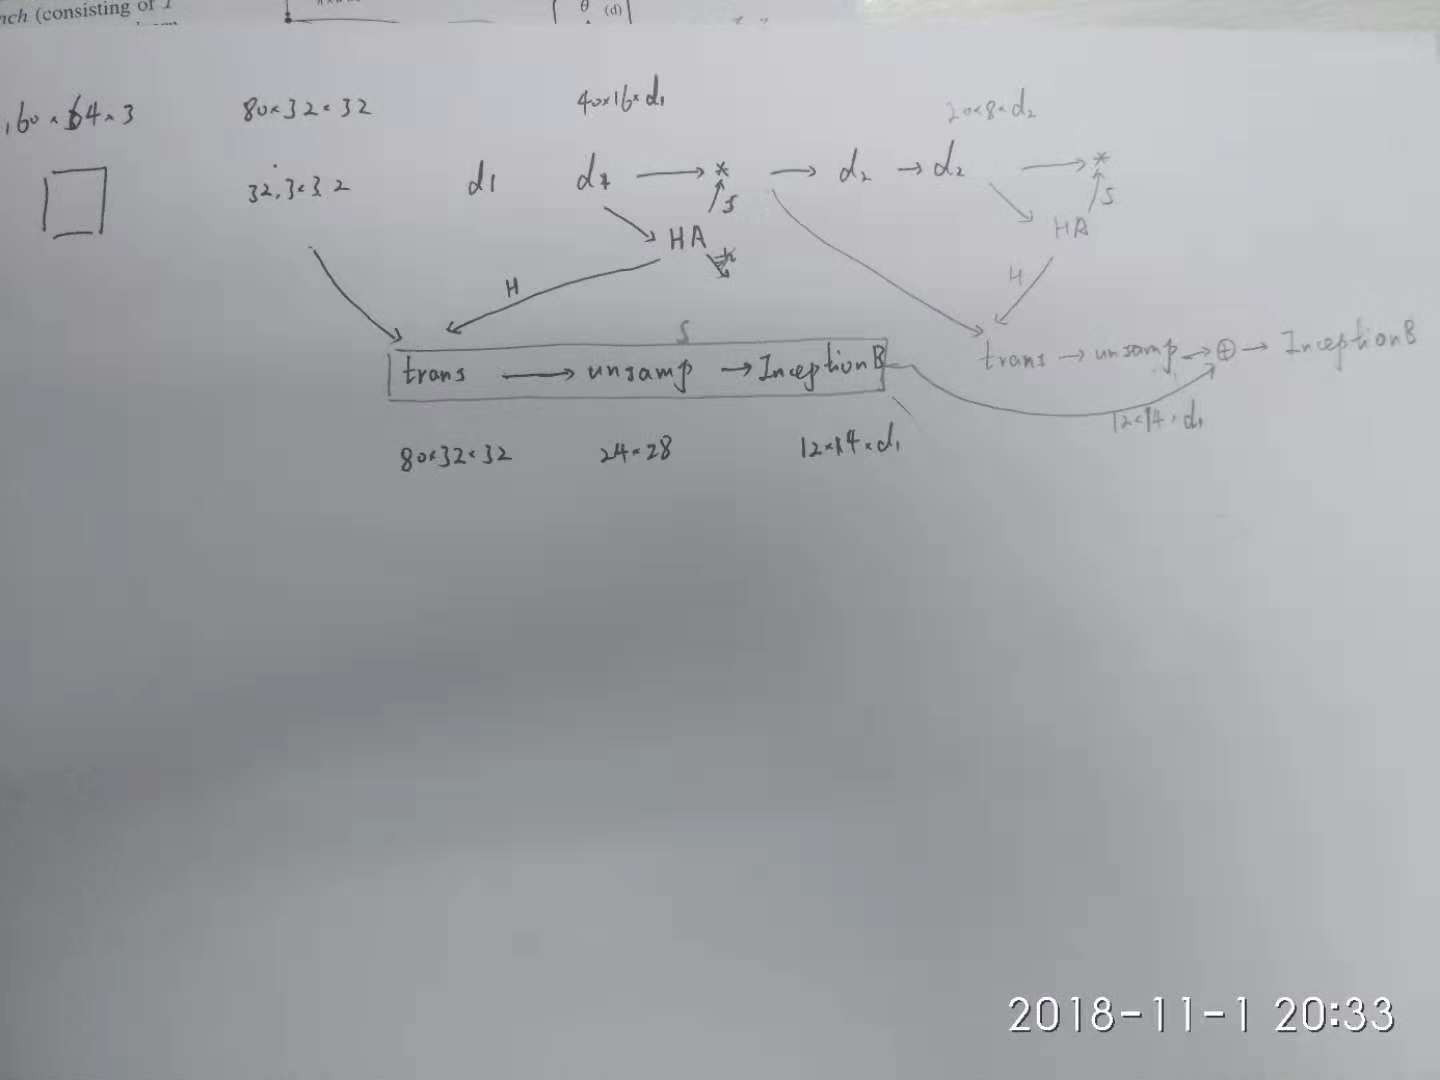 nch (consisting of 1
θ (d)
160 × 64 × 3 80×32×32 40×16×d1 20×8×d2
32,3×32 d1 d1 → * → d2 → d2 → *
S S
HA HA
H H
S
trans → unsamp → InceptionB trans → unsamp → ⊕ → InceptionB
12×14×d1
80×32×32 24×28 12×14×d1
2018-11-1 20:33